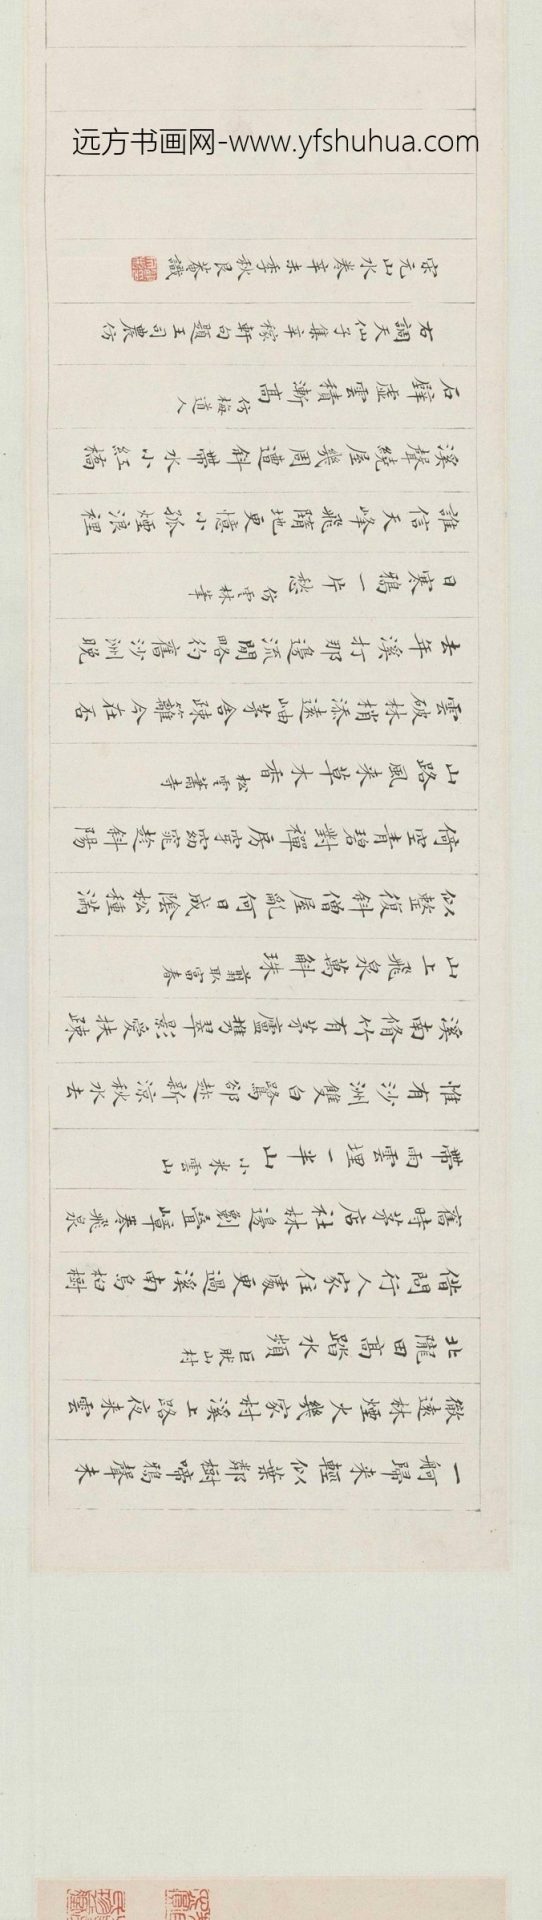 远方书画网-www.yfshuhua.com
一舸歸來輕似葉鄰樹啼鴉聲未
徹遠林煙火幾家村溪上路夜來雲
北隴田高踏水頻 巨然山村
借問行人家住處更過溪南烏桕樹
舊時茅店社林邊剩疊嶂卷飛泉
帶雨雲埋一半山 小米雲山
惟有沙洲雙白鷺卻趁新涼秋水去
溪南脩竹有茅廬攜翠影愛扶疎
山上飛泉萬斛珠 翦取富春
似整復斜僧屋亂何日成陰松種滿
倚空青碧對禪房穿窈窕趁斜陽
山路風來草木香 松雪蕭寺
雲破林梢添遠岫茅舍疎籬今在否
去年溪打那邊流開略彴舊沙洲晚
日寒鴉一片愁 仿雲林筆
誰信天峰飛墮地更憶小孤煙浪裡
溪聲繞屋幾周遭斜帶水小紅橋
石壁虛雲積漸高 仿梅道人
右調天仙子集辛稼軒句題王司農仿
宋元山水卷辛未季秋艮菴識